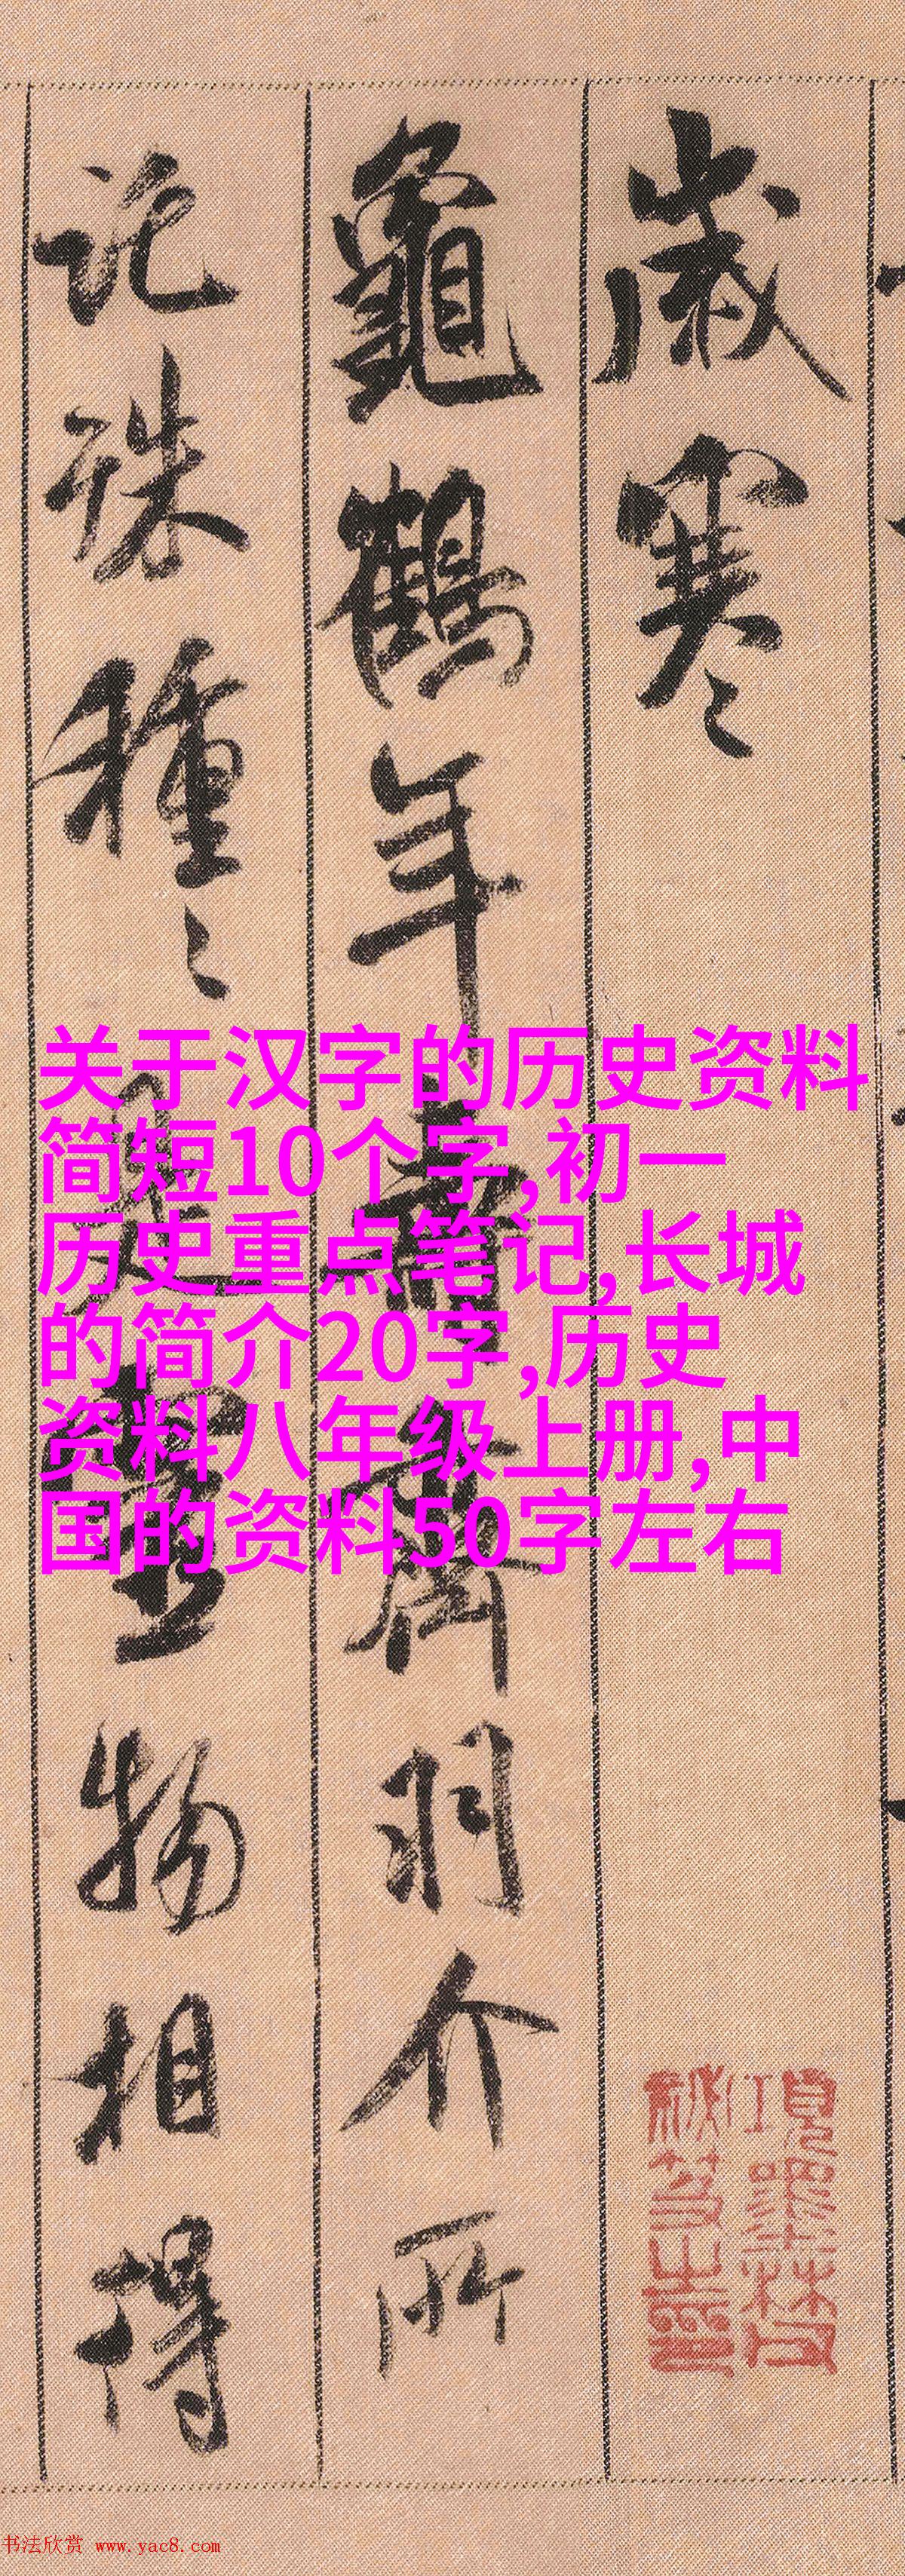 歲寒〻
龜鶴年壽齊羽介所
託殊種〻是靈物相得
关于汉字的历史资料
简短10个字,初一
历史重点笔记,长城
的简介20字,历史
资料八年级上册,中
国的资料50字左右
項墨林父
祕笈之印
书法欣赏 www.yac8.com